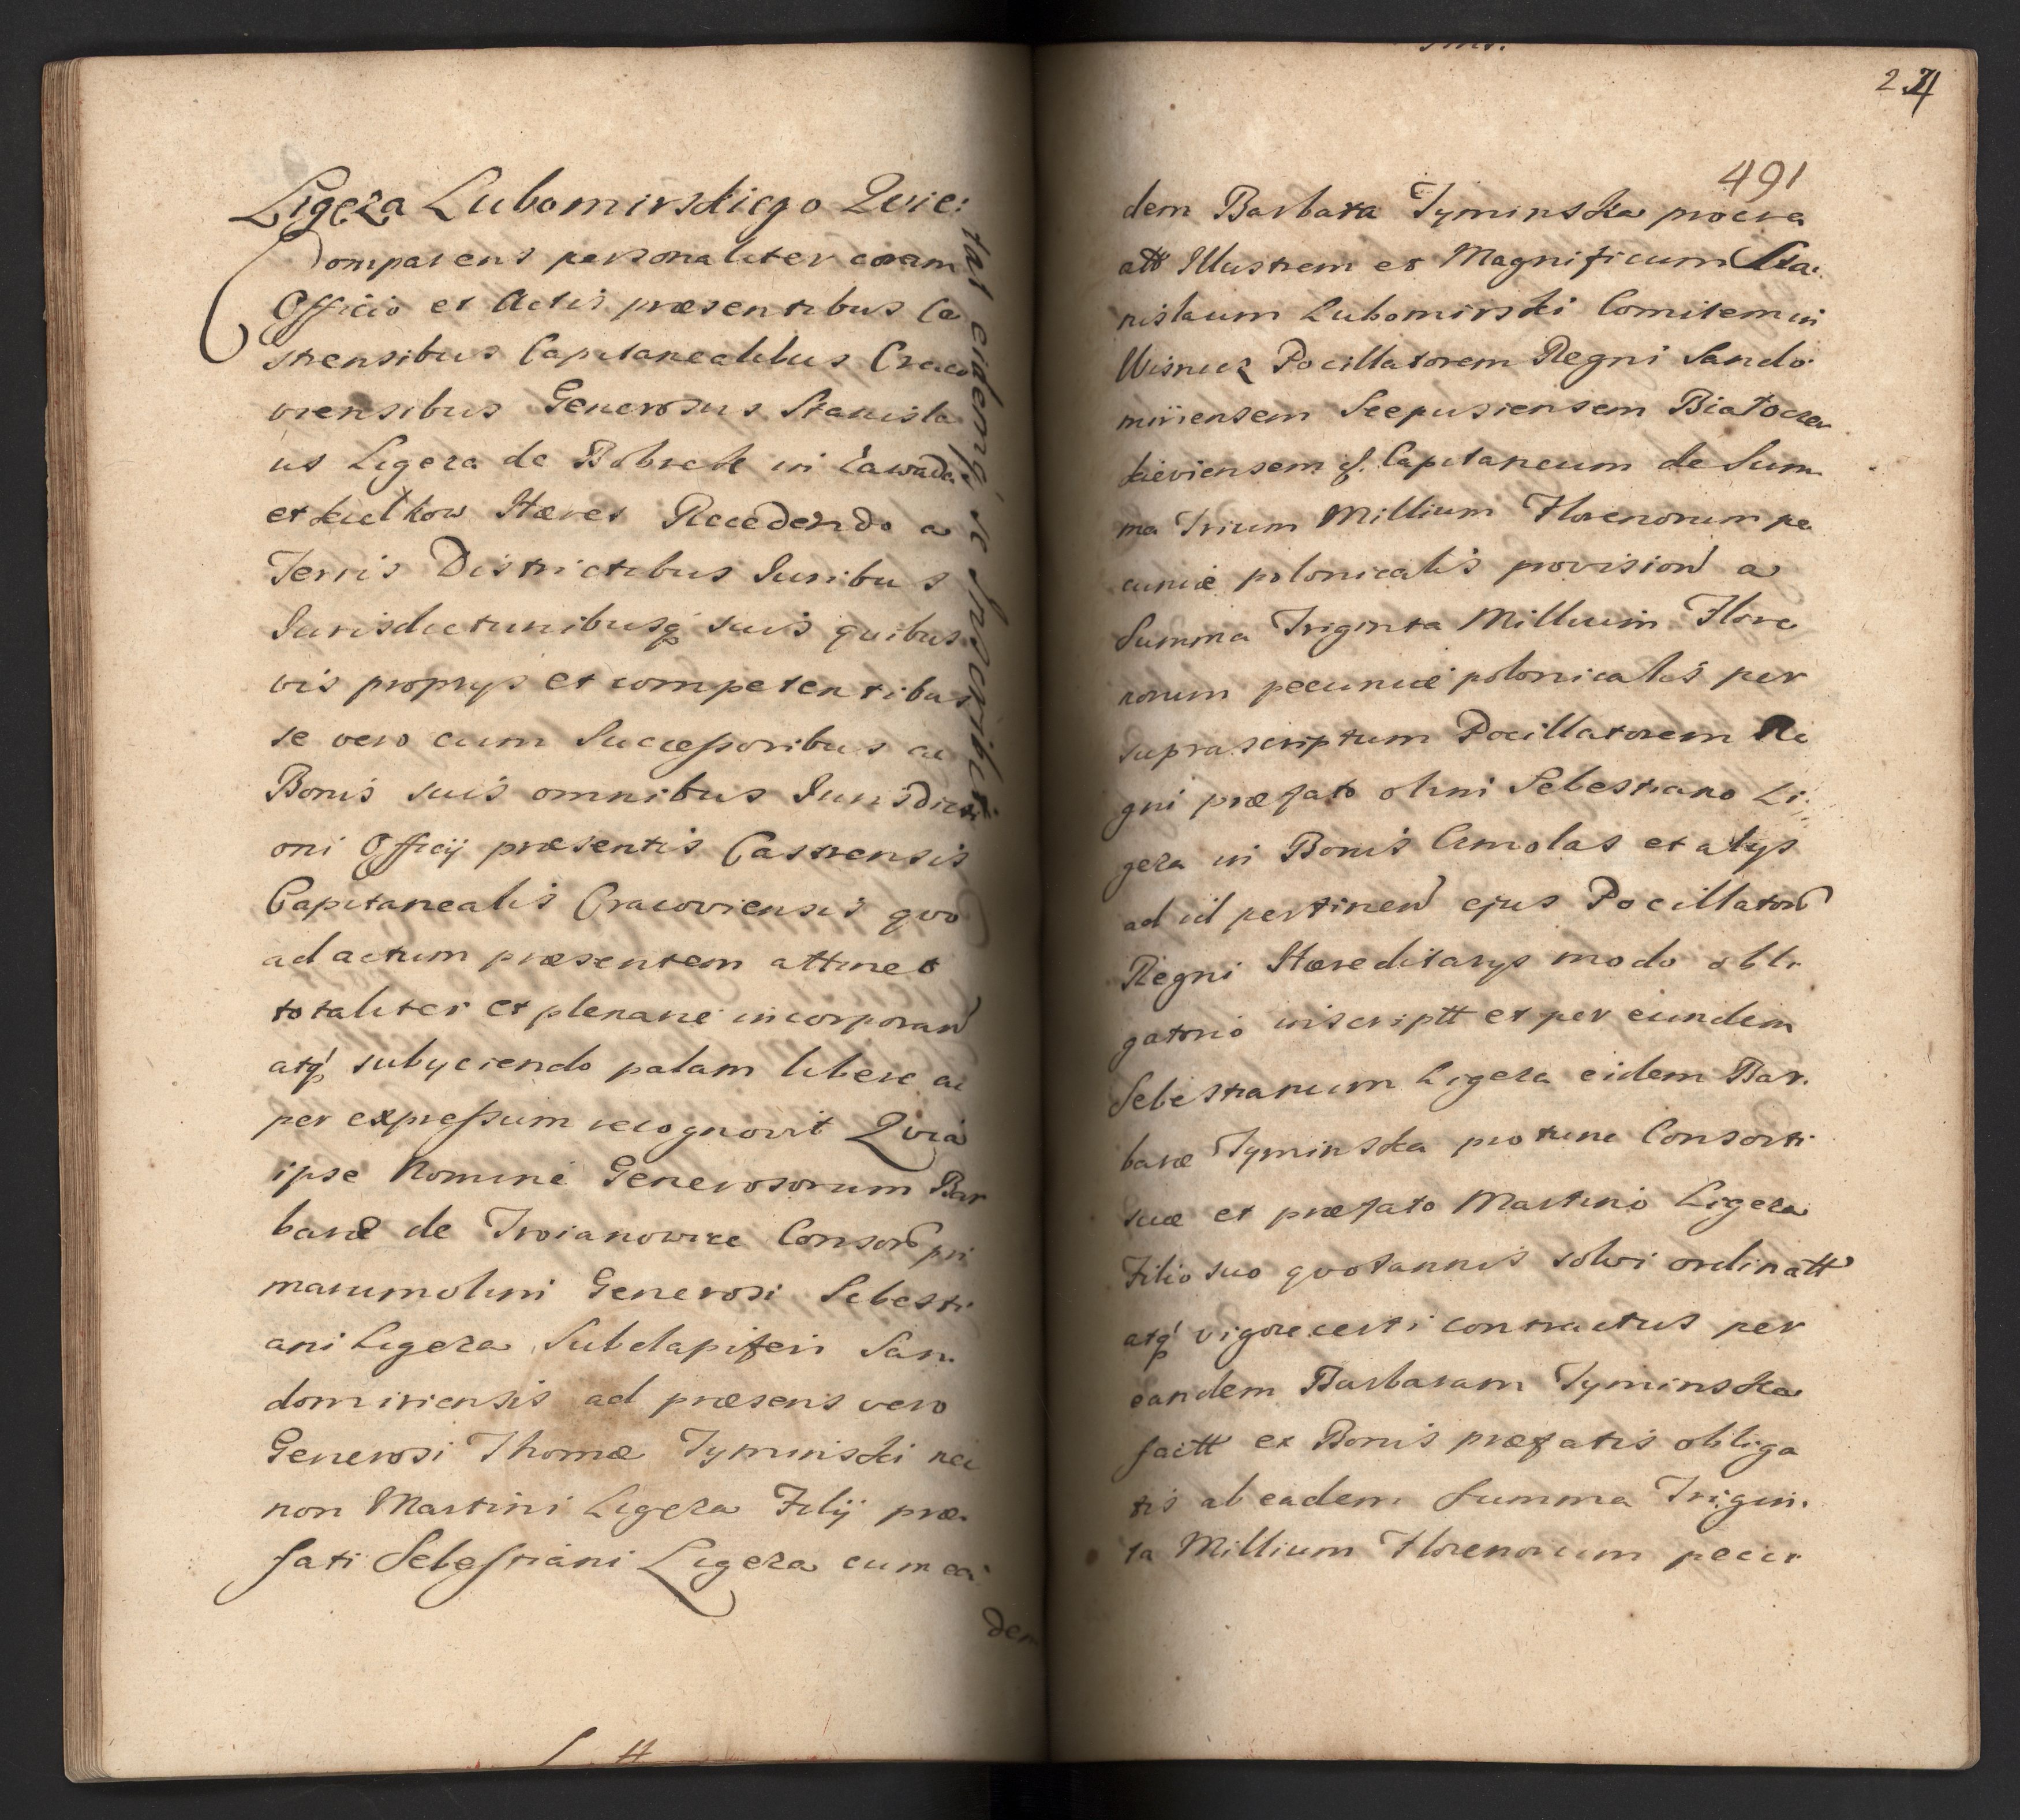 Ligęza Lubomirskiego Qvie:
tat eidemq́ se Inscribit
Comparens personaliter coram
Officio et Actis præsentibus Ca
strensibus Capitanealibus Craco
viensibus Generosus Stanisla
us Ligęza de Bobrek in Zawada
et Kielkow Hæres Recedendo a
Terris Districtibus Iuribus
Iurisdictionibusq́ suis quibus
vis proprys et competentibus
se vero cum Successoribus ac
Bonis suis omnibus Iurisdicti
oni Officij præsentis Castrensis
Capitanealis Cracoviensis qvo
ad actum præsentem attinet
totaliter et plenarie incorporand
atq́ subyciendo palam libere ac
per expressum recognovit Qvia
ipse Nomine Generosorum Bar
baræ de Troianowice Consort pri
marum olim Generosi Sebesti
ani Ligęza Subdapiferi San
domiriensis ad præsens vero
Generosi Thomæ Tyminski nec
non Martini Ligęza Filij præ
fati Sebestiani Ligęza cum ea
dem
24
491
dem Barbara Tyminska procrea
att Illustrem et Magnificum Sta:
nislaum Lubomirski Comitem in
Wisnicz Pocillatorem Regni Sando
miriensem Scepusiensem Białocer
kieviensem q. Capitaneum de Sum
ma Trium Millium Florenorum pe
cuniæ polonicalis provision a
Summa Triginta Millium Flore
norum pecuniæ polonicalis per
suprascriptum Pocillatorem Re
gni præfato olim Sebestiano Li:
gęza in Bonis Cmolas et alys
ad id pertinen ejus Pocillator
Regni Hæreditarys modo obli
gatorio inscriptt et per eundem
Sebestianum Ligęza eidem Bar.
baræ Tyminska pro tunc Consorti
suæ et præfato Martino Ligęza
Filio suo qvotannis solvi ordinatt
atq́ vigore certi contractus per
eandem Barbaram Tyminska
factt ex Bonis præfatis obliga
tis ab eadem Summa Trigin.
ta Millium Florenorum pecu